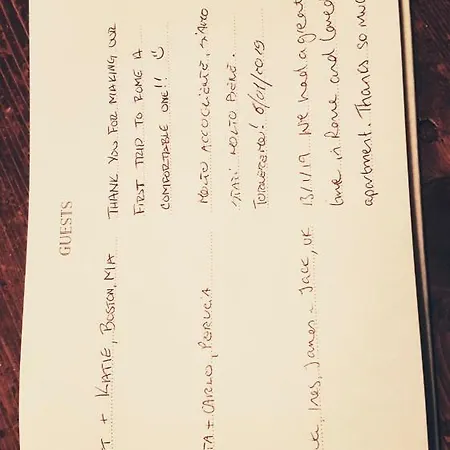 GUESTS
+ KATIE, BOSTON, MA
THANK YOU FOR MAKING OUR
FIRST TRIP TO ROME A
COMFORTABLE ONE!! ☺
+ CARLO, PERUGIA
MOLTO ACCOGLIENTE, SIAMO
STATI MOLTO BENE.
TORNEREMO!
Ines, James + Jack, UK
13/1/19 We had a great
time in Rome and loved
apartment. Thanks so much